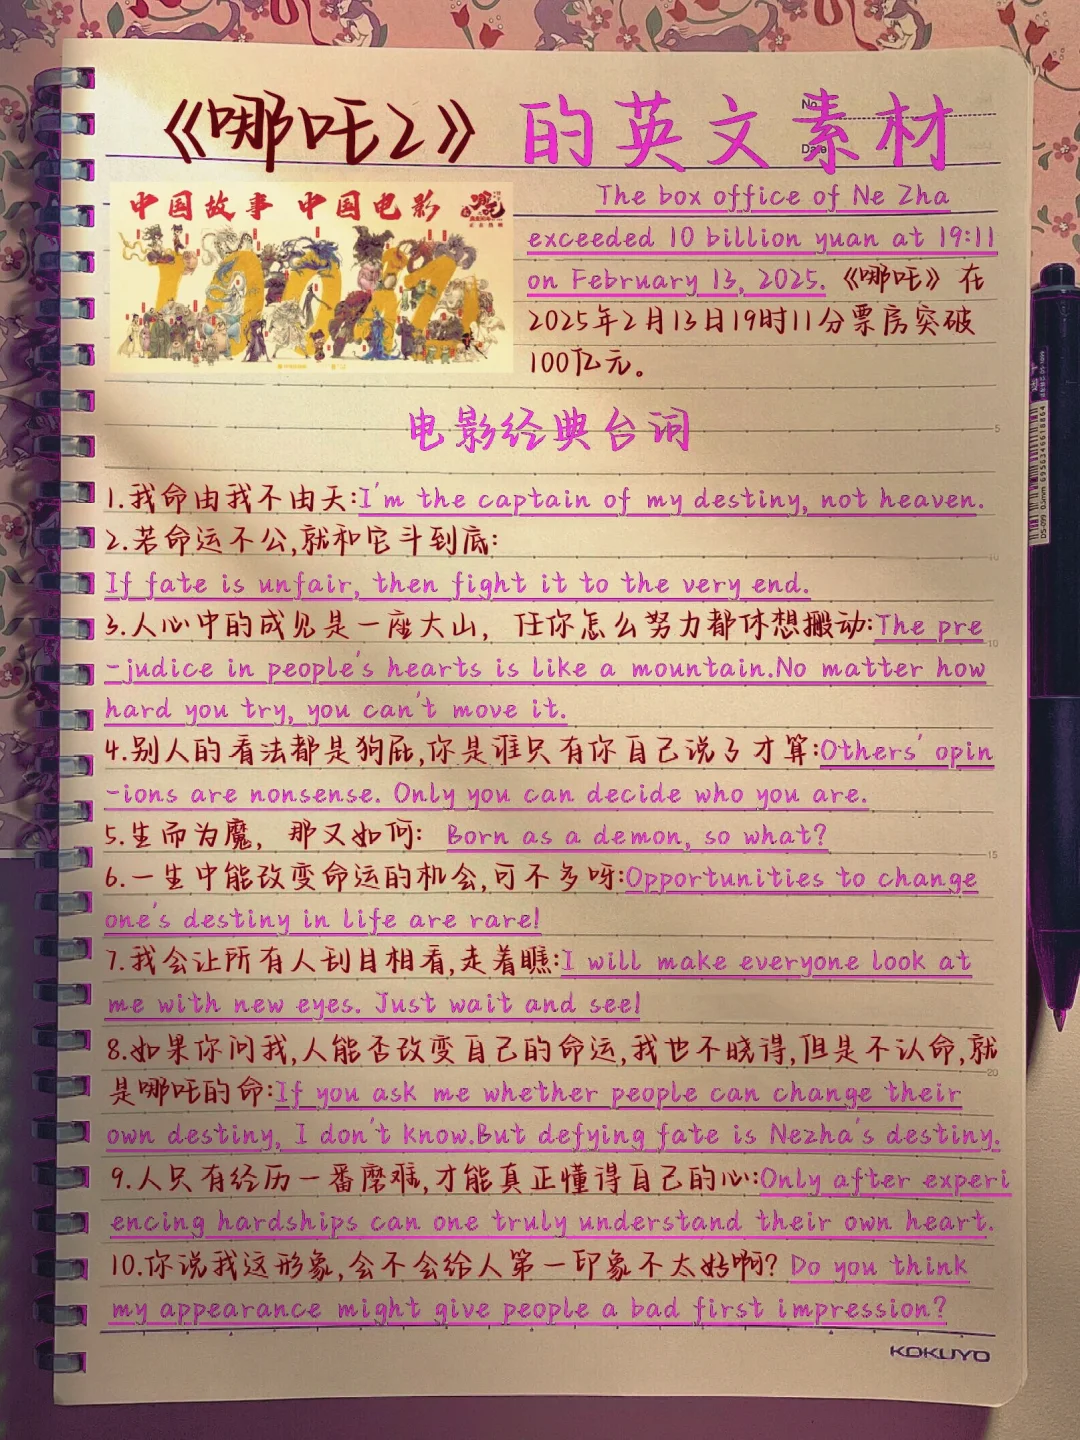 《哪吒2》的英文素材
No.
Date
中国故事 中国电影
The box office of Ne Zha
exceeded 10 billion yuan at 19:11
on February 13, 2025. 《哪吒》在
2025年2月13日19时11分票房突破
100亿元。
电影经典台词
5
1.我命由我不由天:I'm the captain of my destiny, not heaven.
2.若命运不公,就和它斗到底:
10
If fate is unfair, then fight it to the very end.
3.人心中的成见是一座大山，任你怎么努力都休想搬动:The pre
10
-judice in people's hearts is like a mountain.No matter how
hard you try, you can't move it.
4.别人的看法都是狗屁,你是谁只有你自己说了才算:Others' opin
-ions are nonsense. Only you can decide who you are.
5.生而为魔，那又如何: Born as a demon, so what?
15
6.一生中能改变命运的机会,可不多呀:Opportunities to change
one's destiny in life are rare!
7.我会让所有人刮目相看,走着瞧:I will make everyone look at
me with new eyes. Just wait and see!
8.如果你问我,人能否改变自己的命运,我也不晓得,但是不认命,就
20
是哪吒的命:If you ask me whether people can change their
own destiny, I don't know.But defying fate is Nezha's destiny.
9.人只有经历一番磨难,才能真正懂得自己的心:Only after experi
encing hardships can one truly understand their own heart.
10.你说我这形象,会不会给人第一印象不太好啊? Do you think
my appearance might give people a bad first impression?
KOKUYO
DS-099 0.5mm 6956346618864